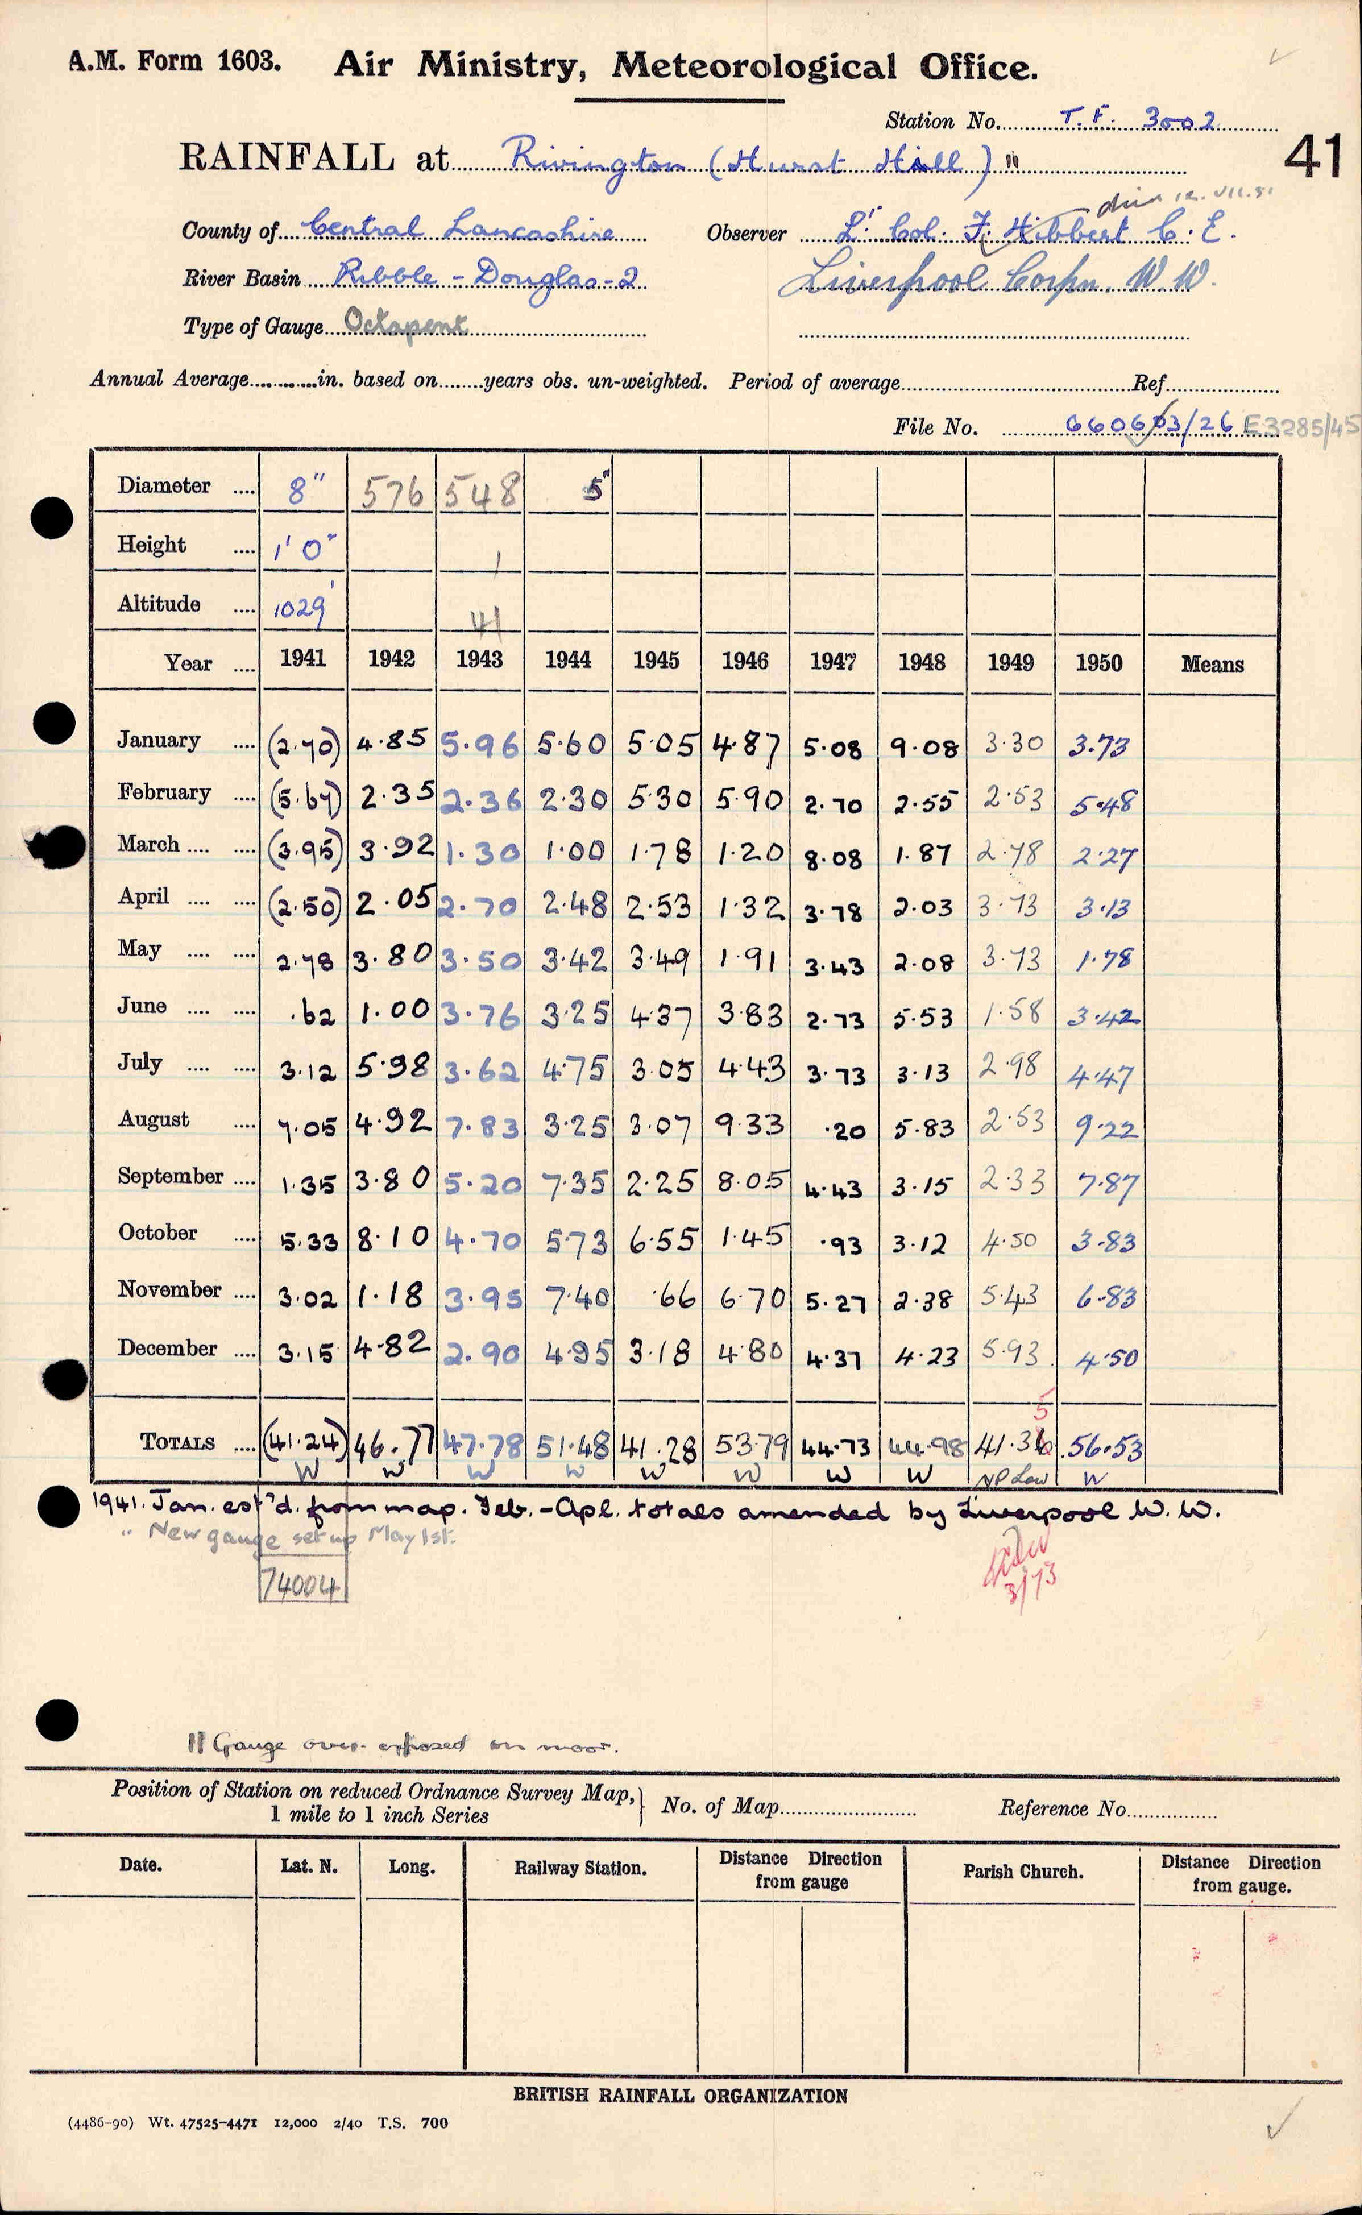 A.M. Form 1603. Air Ministry, Meteorological Office.
Station No. T.F. 3002
41
RAINFALL at Rivington (Hurst Hill) "
County of Central Lancashire Observer Lt. Col. F. Hibbert C.E.
River Basin Ribble - Douglas - 2 Liverpool Corpn. W W.
Type of Gauge Octapent
Annual Average in. based on years obs. un-weighted. Period of average Ref
File No. 660603/26 E3285/45
Diameter 8" 576 548 5"
Height 1' 0" 1
Altitude 1029' 41
Year 1941 1942 1943 1944 1945 1946 1947 1948 1949 1950 Means
January (2.70) 4.85 5.96 5.60 5.05 4.87 5.08 9.08 3.30 3.73
February (5.67) 2.35 2.36 2.30 5.30 5.90 2.70 2.55 2.53 5.48
March (3.95) 3.92 1.30 1.00 1.78 1.20 8.08 1.87 2.78 2.27
April (2.50) 2.05 2.70 2.48 2.53 1.32 3.78 2.03 3.73 3.13
May 2.78 3.80 3.50 3.42 3.49 1.91 3.43 2.08 3.73 1.78
June .62 1.00 3.76 3.25 4.37 3.83 2.73 5.53 1.58 3.42
July 3.12 5.98 3.62 4.75 3.05 4.43 3.73 3.13 2.98 4.47
August 7.05 4.92 7.83 3.25 3.07 9.33 .20 5.83 2.53 9.22
September 1.35 3.80 5.20 7.35 2.25 8.05 4.43 3.15 2.33 7.87
October 5.33 8.10 4.70 5.73 6.55 1.45 .93 3.12 4.50 3.83
November 3.02 1.18 3.95 7.40 .66 6.70 5.27 2.38 5.43 6.83
December 3.15 4.82 2.90 4.95 3.18 4.80 4.37 4.23 5.93 4.50
5
TOTALS (41.24) 46.77 47.78 51.48 41.28 53.79 44.73 44.98 41.36 56.53
W W W W W W W W NP Low W
1941. Jan. est'd. from map. Feb. - Apl. totals amended by Liverpool W. W.
" New gauge set up May 1st.
3/73
74004
|| Gauge over-exposed on moor.
Position of Station on reduced Ordnance Survey Map, } No. of Map Reference No.
1 mile to 1 inch Series
Date. Lat. N. Long. Railway Station. Distance Direction from gauge Parish Church. Distance Direction from gauge.
BRITISH RAINFALL ORGANIZATION
(4486-90) Wt. 47525-4471 12,000 2/40 T.S. 700